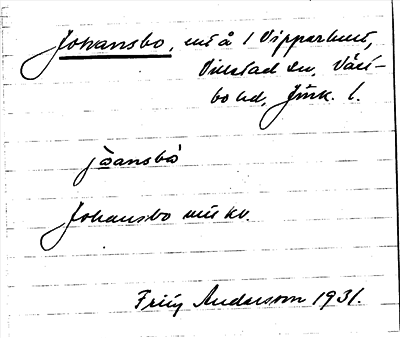 Johansbo, uts å 1 Vipparhult,
Villstad sn, Väst-
bo hd, Jönk. l.
jòansbó
Johansbo mtl kv.
Fritz Andersson 1931.